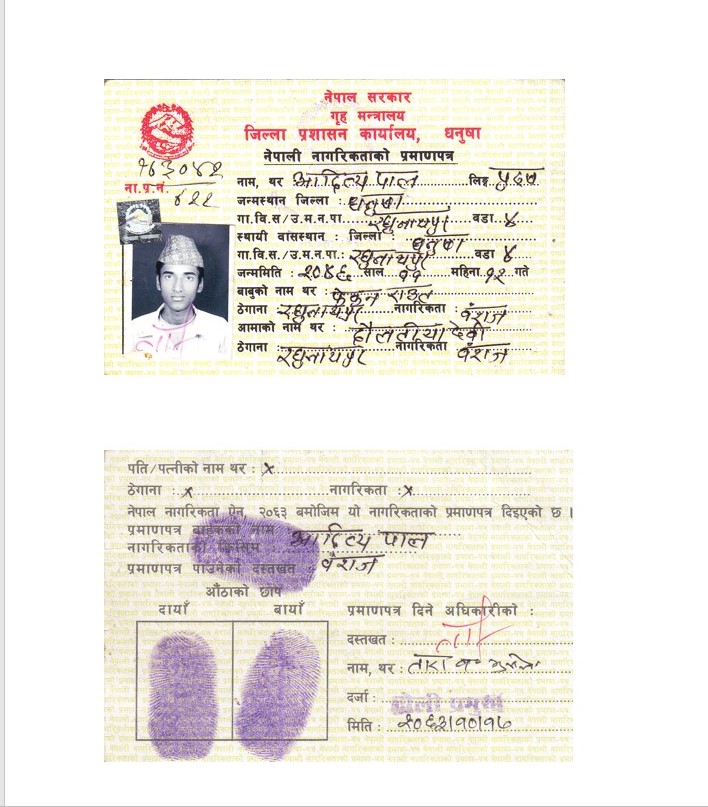 नेपाल सरकार
गृह मन्त्रालय
जिल्ला प्रशासन कार्यालय, धनुषा
नेपाली नागरिकताको प्रमाणपत्र
ना.प्र.नं.
नाम, थर : आदित्य पाल लिङ्ग पुरुष
जन्मस्थान जिल्ला : धनुषा
गा.वि.स/उ.म.न.पा. रघुनाथपुर वडा ४
स्थायी वासस्थान : जिल्ला : धनुषा
गा.वि.स/उ.म.न.पा.: रघुनाथपुर वडा ४
जन्ममिति : २०४६ साल ११ महिना १२ गते
बाबुको नाम थर : फेकन राउत
ठेगाना रघुनाथपुर नागरिकता : वंशज
आमाको नाम थर : दौलतीया देवी
ठेगाना रघुनाथपुर नागरिकता वंशज
पति/पत्नीको नाम थर : x
ठेगाना : x नागरिकता : x
नेपाल नागरिकता ऐन, २०६३ बमोजिम यो नागरिकताको प्रमाणपत्र दिइएको छ ।
प्रमाणपत्र बाहकको नाम आदित्य पाल
नागरिकताको किसिम : वंशज
प्रमाणपत्र पाउनेको दस्तखत
औंठाको छाप
दायाँ बायाँ
प्रमाणपत्र दिने अधिकारीको :
दस्तखत :
नाम, थर : तारा
दर्जा :
मिति : २०६३।१०।१७